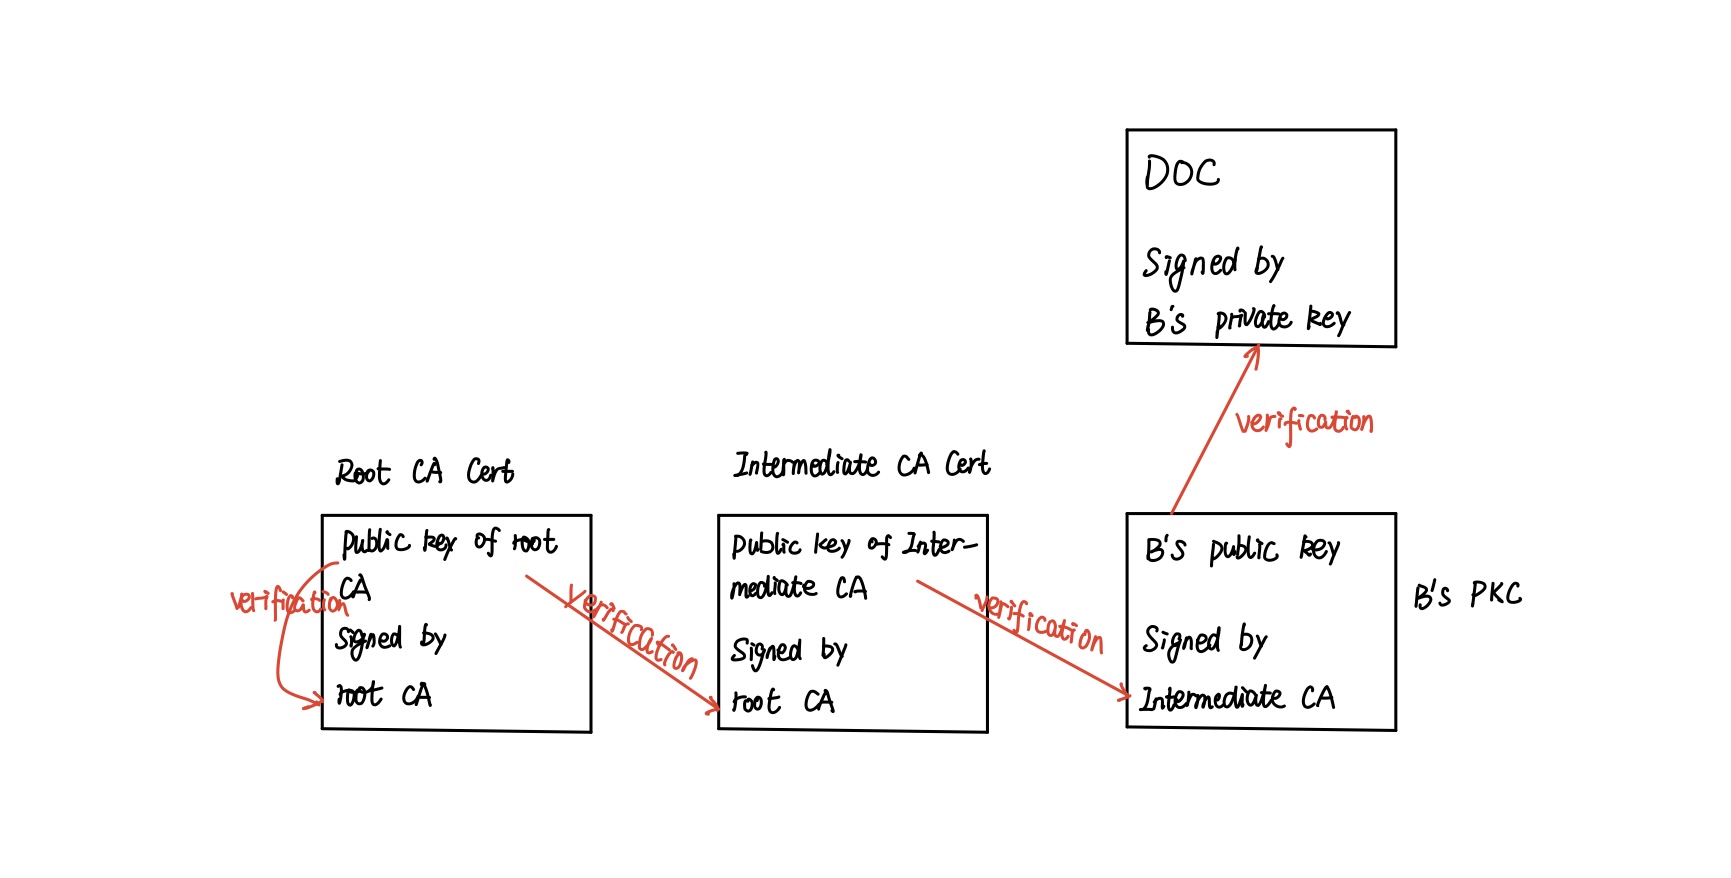 DOC
Signed by
B's private key
verification
Root CA Cert
public key of root
CA
Signed by
root CA
verification
verification
Intermediate CA Cert
public key of Inter-
mediate CA
Signed by
root CA
verification
B's public key
Signed by
Intermediate CA
B's PKC